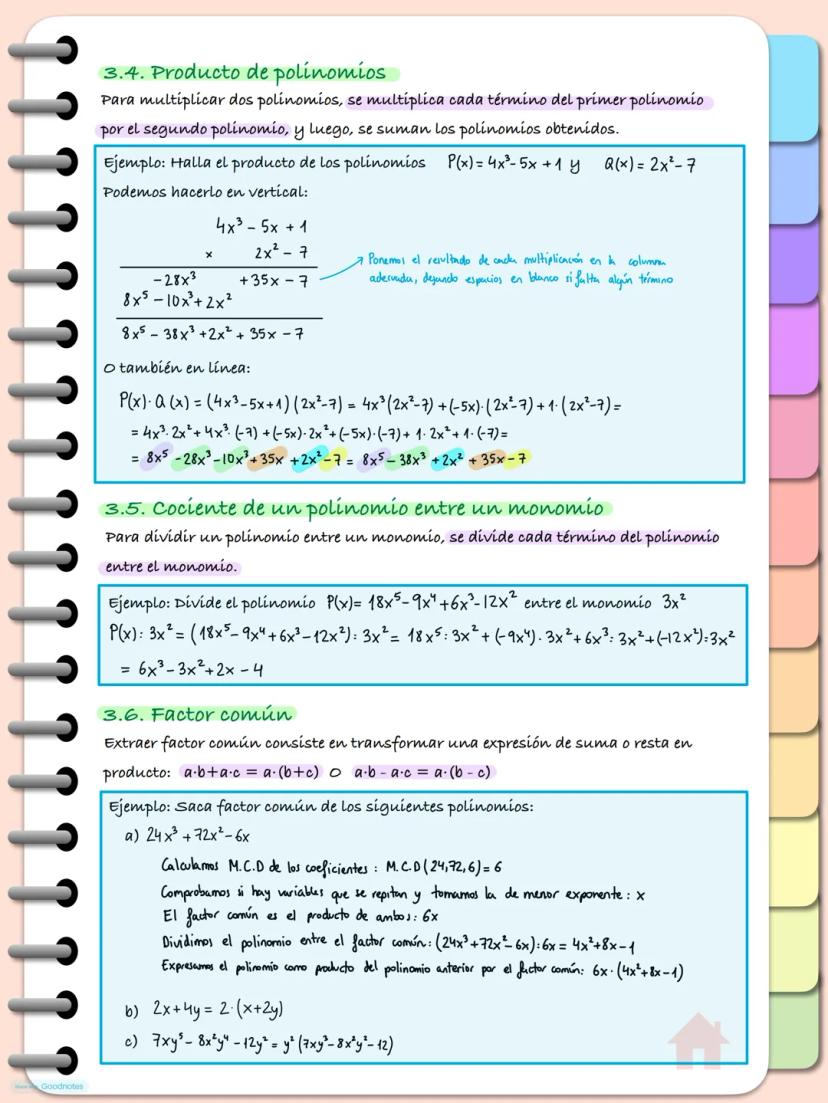 3.4. Producto de polinomios
Para multiplicar dos polinomios, se multiplica cada término del primer polinomio
por el segundo polinomio, y luego, se suman los polinomios obtenidos.
Ejemplo: Halla el producto de los polinomios P(x) = 4x³ - 5x + 1 y Q(x) = 2x² - 7
Podemos hacerlo en vertical:
4x³ - 5x + 1
x 2x² - 7
Ponemos el resultado de cada multiplicación en la columna
-28x³ +35x - 7
adecuada, dejando espacios en blanco si falta algún término
8x⁵ - 10x³ + 2x²
8x⁵ - 38x³ + 2x² + 35x - 7
O también en línea:
P(x)·Q(x) = (4x³-5x+1)(2x²-7) = 4x³(2x²-7) + (-5x)·(2x²-7) + 1·(2x²-7) =
= 4x³·2x² + 4x³·(-7) + (-5x)·2x² + (-5x)·(-7) + 1·2x² + 1·(-7) =
= 8x⁵ - 28x³ - 10x³ + 35x + 2x² - 7 = 8x⁵ - 38x³ + 2x² + 35x - 7
3.5. Cociente de un polinomio entre un monomio
Para dividir un polinomio entre un monomio, se divide cada término del polinomio
entre el monomio.
Ejemplo: Divide el polinomio P(x) = 18x⁵ - 9x⁴ + 6x³ - 12x² entre el monomio 3x²
P(x) : 3x² = (18x⁵ - 9x⁴ + 6x³ - 12x²) : 3x² = 18x⁵ : 3x² + (-9x⁴) · 3x² + 6x³ : 3x² + (-12x²) : 3x²
= 6x³ - 3x² + 2x - 4
3.6. Factor común
Extraer factor común consiste en transformar una expresión de suma o resta en
producto: a·b+a·c = a·(b+c) O a·b - a·c = a·(b - c)
Ejemplo: Saca factor común de los siguientes polinomios:
a) 24x³ + 72x² - 6x
Calculamos M.C.D de los coeficientes : M.C.D(24,72,6) = 6
Comprobamos si hay variables que se repitan y tomamos la de menor exponente : x
El factor común es el producto de ambos: 6x
Dividimos el polinomio entre el factor común: (24x³ + 72x² - 6x) : 6x = 4x² + 8x - 1
Expresamos el polinomio como producto del polinomio anterior por el factor común: 6x·(4x² + 8x - 1)
b) 2x + 4y = 2·(x+2y)
c) 7xy⁵ - 8x²y⁴ - 12y² = y²(7xy³ - 8x²y² - 12)
Goodnotes